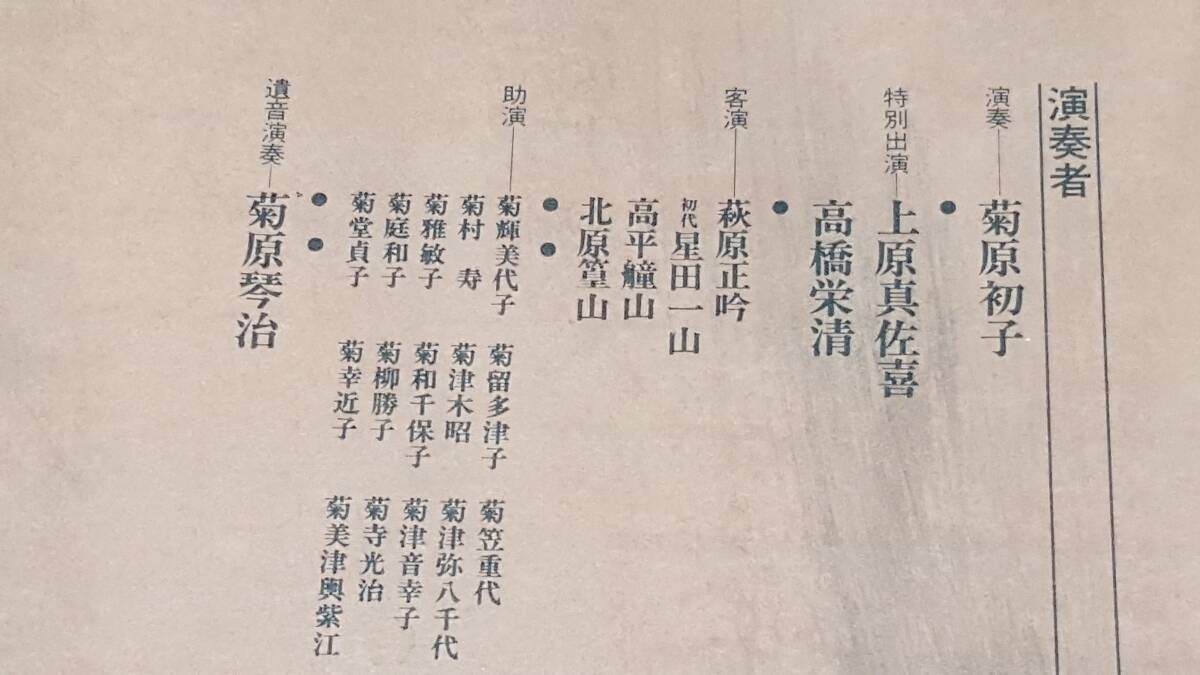 演奏者
演奏―菊原初子
●
特別出演―上原真佐喜
高橋栄清
●
客演―萩原正吟
初代星田一山
高平艟山
北原篁山
●●
助演―菊輝美代子 菊留多津子 菊笠重代
菊村 寿 菊津木昭 菊津弥八千代
菊雅敏子 菊和千保子 菊津音幸子
菊庭和子 菊柳勝子 菊寺光治
菊堂貞子 菊幸近子 菊美津興紫江
●●
遺音演奏―菊原琴治